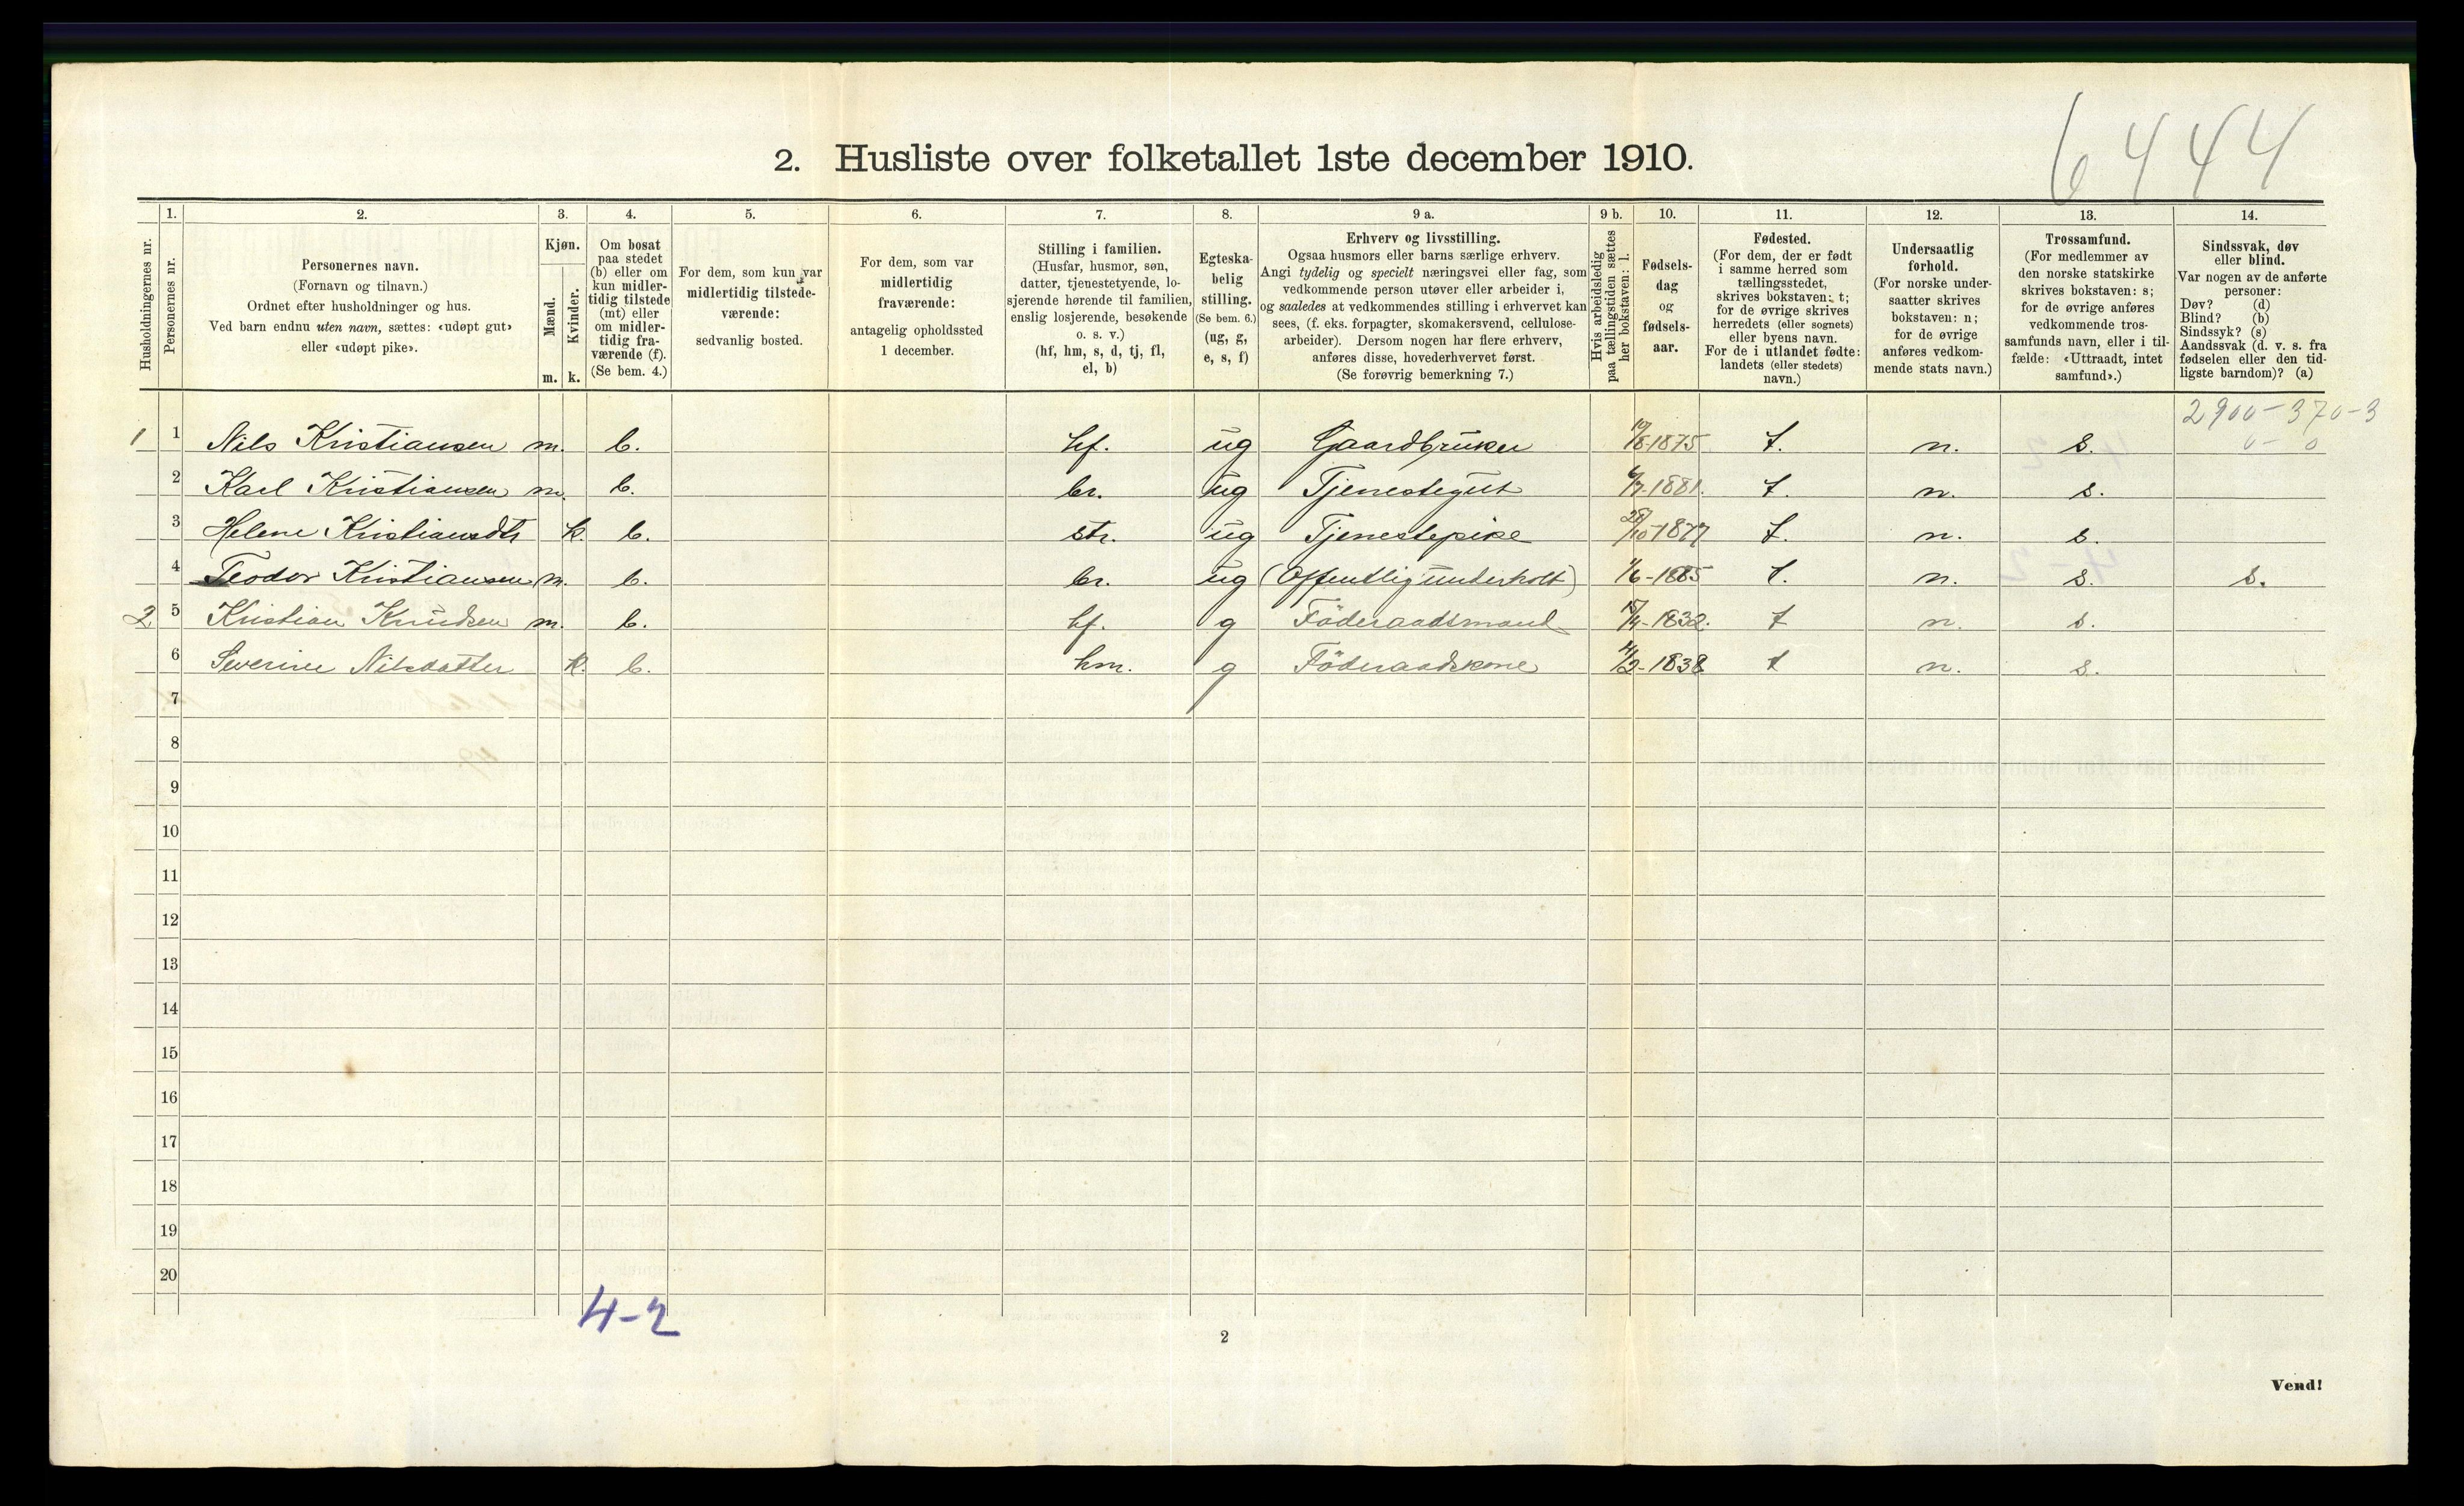 6444
2. Husliste over folketallet 1ste december 1910.
Husholdningernes nr.
1. Personernes nr.
2. Personernes navn.
(Fornavn og tilnavn.)
Ordnet efter husholdninger og hus.
Ved barn endnu uten navn, sættes: «udøpt gut»
eller «udøpt pike».
3. Kjøn.
Mænd. Kvinder.
m. k.
4. Om bosat
paa stedet
(b) eller om
kun midler-
tidig tilstede
(mt) eller
om midler-
tidig fra-
værende (f).
(Se bem. 4.)
5. For dem, som kun var
midlertidig tilstede-
værende:
sedvanlig bosted.
6. For dem, som var
midlertidig
fraværende:
antagelig opholdssted
1 december.
7. Stilling i familien.
(Husfar, husmor, søn,
datter, tjenestetyende, lo-
sjerende hørende til familien,
enslig losjerende, besøkende
o. s. v.)
(hf, hm, s, d, tj, fl,
el, b)
8. Egteska-
belig
stilling.
(Se bem. 6.)
(ug, g,
e, s, f)
9 a. Erhverv og livsstilling.
Ogsaa husmors eller barns særlige erhverv.
Angi tydelig og specielt næringsvei eller fag, som
vedkommende person utøver eller arbeider i,
og saaledes at vedkommendes stilling i erhvervet kan
sees, (f. eks. forpagter, skomakersvend, cellulose-
arbeider). Dersom nogen har flere erhverv,
anføres disse, hovederhvervet først.
(Se forøvrig bemerkning 7.)
9 b. Hvis arbeidsledig
paa tællingstiden sættes
her bokstaven: l.
10. Fødsels-
dag
og
fødsels-
aar.
11. Fødested.
(For dem, der er født
i samme herred som
tællingsstedet,
skrives bokstaven: t;
for de øvrige skrives
herredets (eller sognets)
eller byens navn.
For de i utlandet fødte:
landets (eller stedets)
navn.)
12. Undersaatlig
forhold.
(For norske under-
saatter skrives
bokstaven: n;
for de øvrige
anføres vedkom-
mende stats navn.)
13. Trossamfund.
(For medlemmer av
den norske statskirke
skrives bokstaven: s;
for de øvrige anføres
vedkommende tros-
samfunds navn, eller i til-
fælde: «Uttraadt, intet
samfund».)
14. Sindssvak, døv
eller blind.
Var nogen av de anførte
personer:
Døv? (d)
Blind? (b)
Sindssyk? (s)
Aandssvak (d. v. s. fra
fødselen eller den tid-
ligste barndom)? (a)
2900-370-3
0-0
1 1 Nils Kristiansen m. b. hf. ug Gaardbruker 19/8-1875 t. n. s.
2 Karl Kristiansen m. b. br. ug Tjenestegut 6/7-1881. t. n. s.
3 Helene Kristiansdtr k. b. str. ug Tjenestepike 28/10-1877 t. n. s.
4 Teodor Kristiansen m. b. br. ug (Offentlig underholt) 1/6-1885 t. n. s. s.
2 5 Kristian Knudsen m. b. hf. g Föderaadsmand 15/4-1832. t n. s.
6 Severine Nilsdatter k. b. hm. g Föderaadskone 4/2-1838 t n. s.
7
8
9
10
11
12
13
14
15
16
17
18
19
20
4-2
2
Vend!